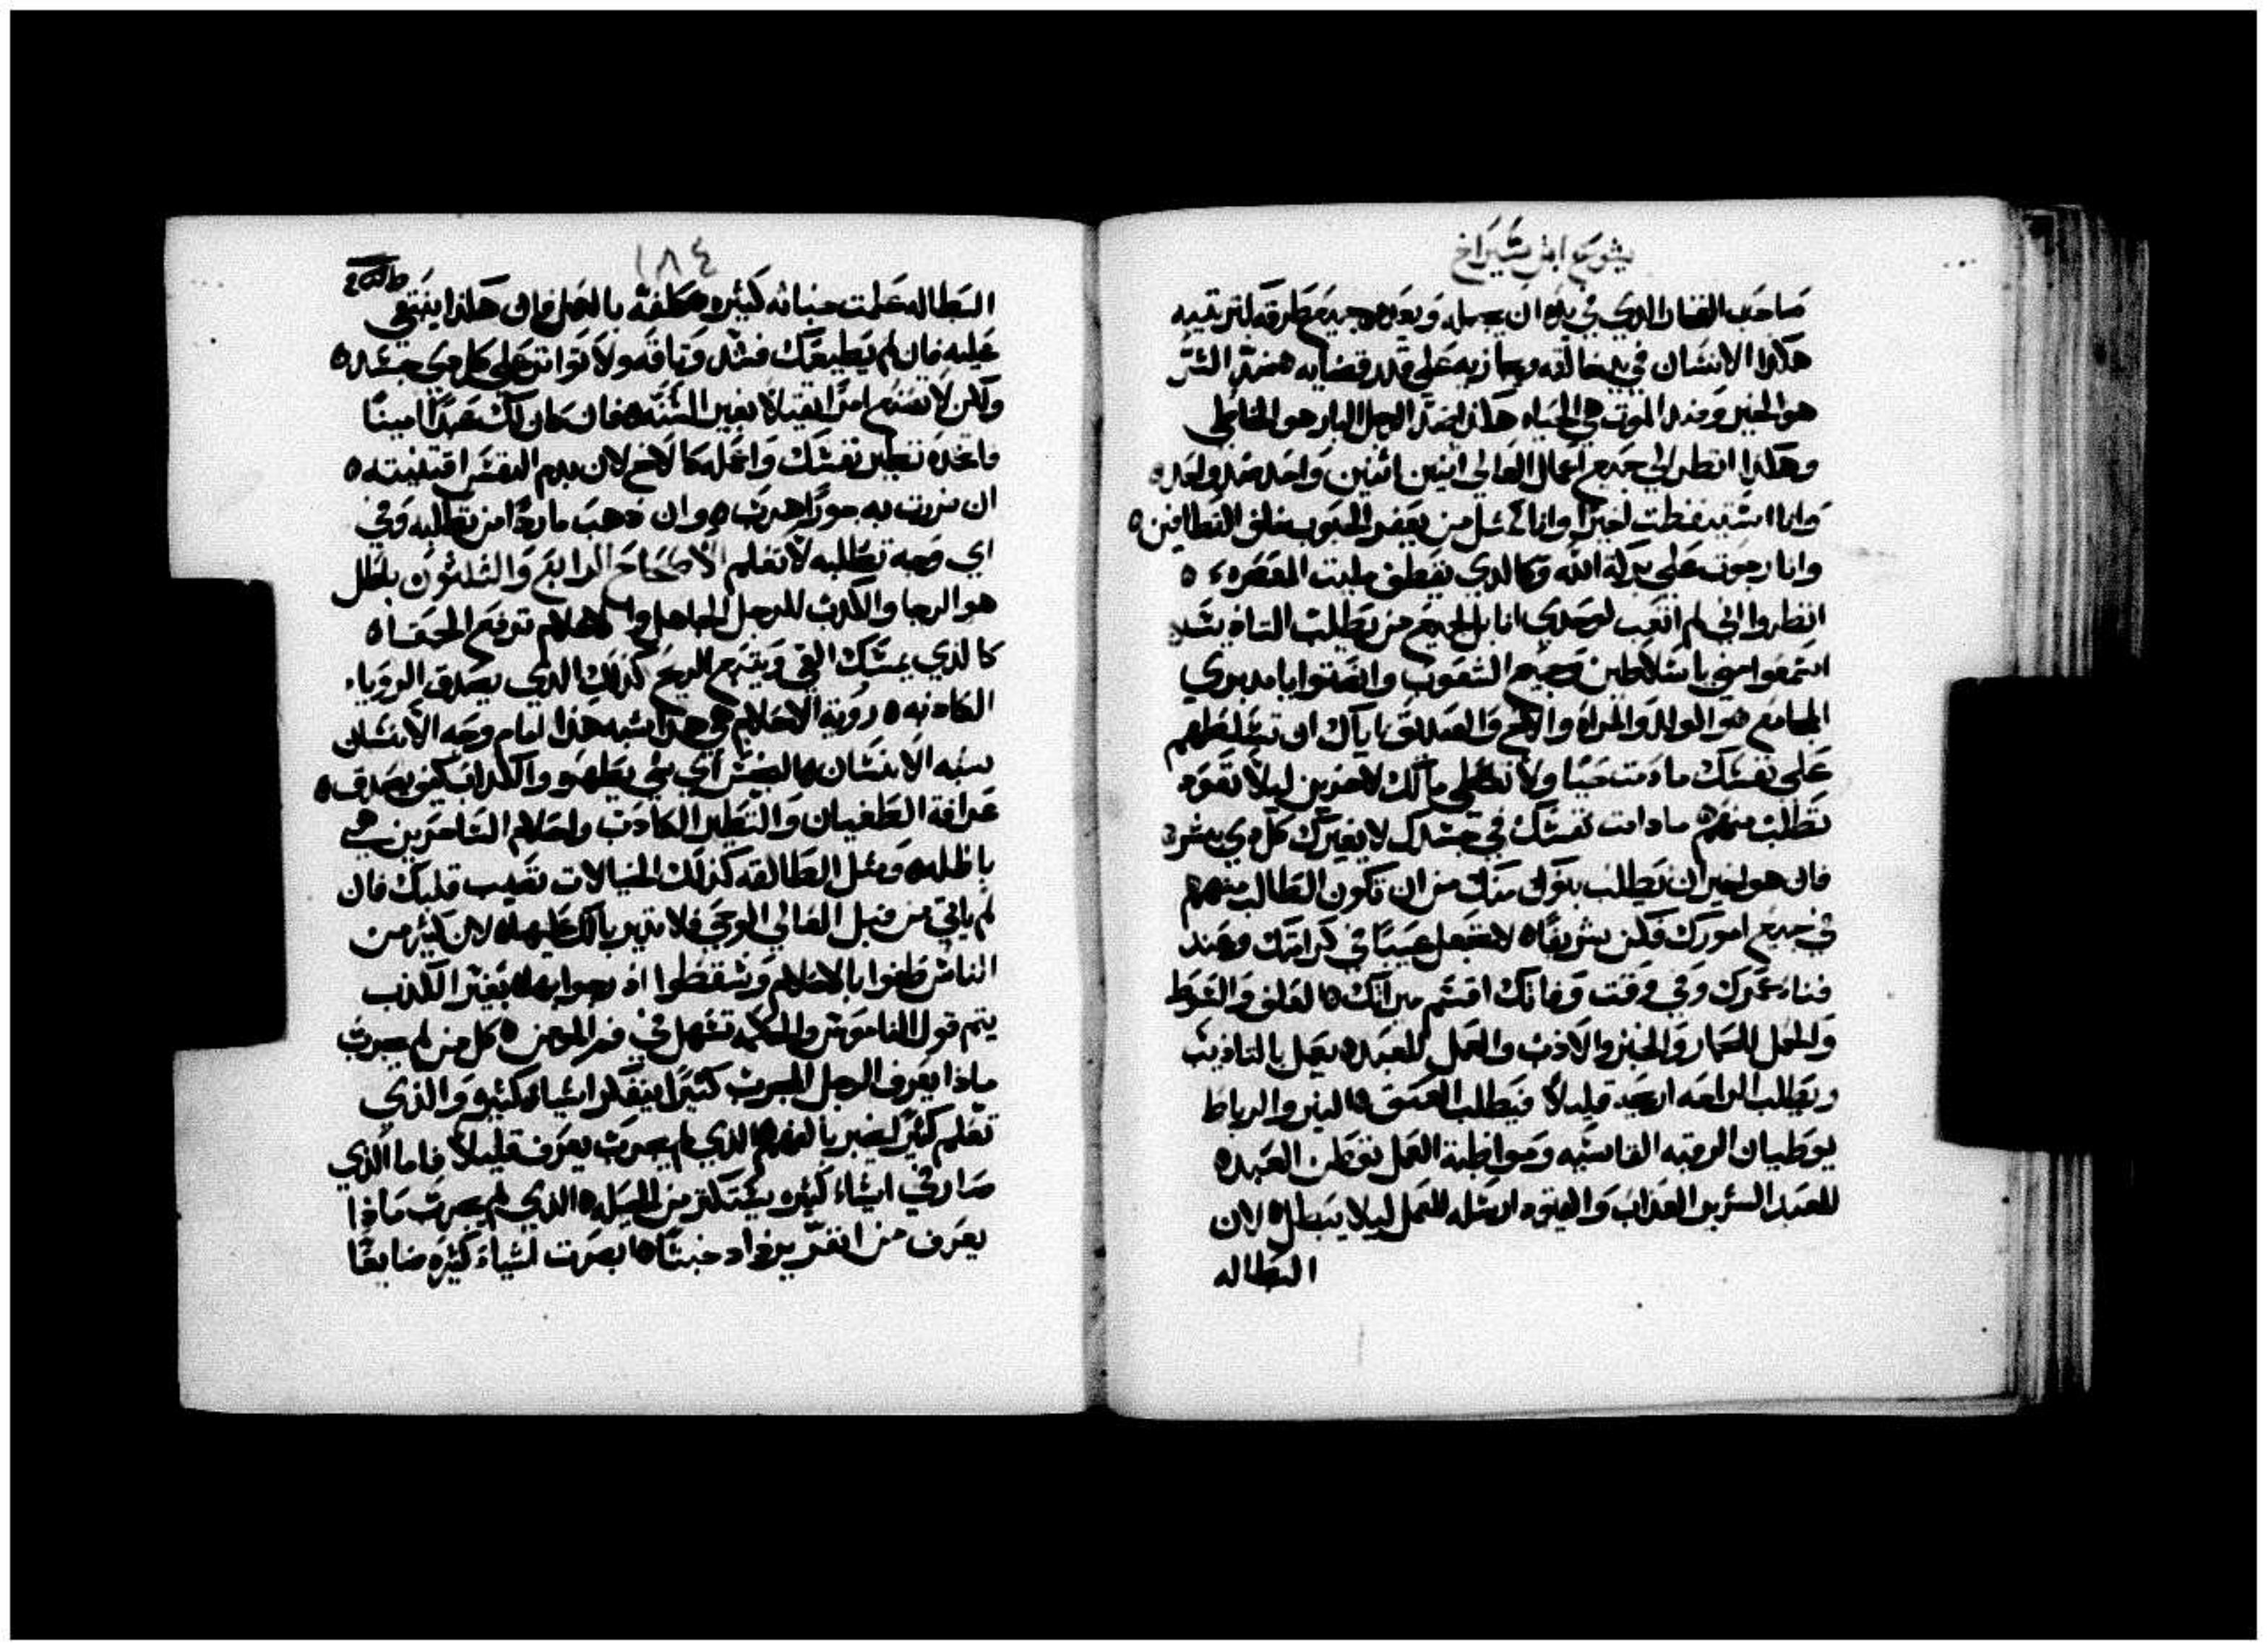 يشوع ابن شيراخ
صاحب الفخار الذي في يده ان يجبله ويديره جميع طرقه لترتيبه
هكذا الانسان في يد خالقه ويجازيه على قدر قضايه ضد الشر
هو الخير وضد الموت هي الحياه هكذا ضد الرجل البار هو الخاطي
وهكذا انظر الى جميع اعمال العالي اثنين اثنين واحد ضد واحده
وانا استيقظت اخيرًا وانا كمثل من يعفر الحبوب خلف القطافينه
وانا رجوت على بركة الله وكالذي يقطف مليت المعصره ه
انظروا اني لم اتعب لوحدي انا بل لجميع من يطلب التاديب
استمعوا مني يا سلاطين وجميع الشعوب وانصتوا يا مدبري
المجامع هو الولد والمراه والاخ والصديق اياك ان تسلطهم
على نفسك ما دمت حيًا ولا تعطي مالك لاخرين ليلا تعود
تطلب منهم ه ما دامت نفسك في جسدك لا يغيرك كل ذي بشره
فان هو اخير ان يطلب بنوك منك من ان تكون الطالب منهم
في جميع امورك فكن شريفًا ه لا تجعل عيبًا في كرامتك وعند
فناء عمرك وفي وقت وفاتك اقسم ميراثك ه العلف والسوط
والحمل للحمار والخبز والادب والعمل للعبد ه يعمل بالتاديب
ويطلب الراحه ارخيه قليلًا فيطلب العتق ه النير والرباط
يوطيان الرقبه القاسيه ومواظبة العمل توطي العبد ه
للعبد الشرير العذاب والقيود ارسله للعمل ليلا يبطل ه لان
البطاله
١٨٤
البطاله علمت خباثه كثيره ه كلفه بالعمل فان هكذا ينبغي
عليه فان لم يطيعك فشد وثاقه ولا توانى على كل ذي جسده
ولكن لا تصنع امرًا ثقيلًا بغير السنه ه فان كان لك عبدًا امينًا
فاتخذه نظير نفسك واعمله كالاخ لان بدم النفس اقتنيته ه
ان ضربت به جورًا هرب ه وان ذهب ماردًا من تطلبه وفي
اي وجه تطلبه لا تعلم الاصحاح الرابع والثلثون باطل
هو الرجا والكذب للرجل الجاهل والاحلام ترفع الحمقا ه
كالذي يمسك الفي ويتبع الريح كذلك الذي يصدق الرويا
الكاذبه ه روية الاحلام هي هذا شبه هذا امام وجه الانسان
شبه الانسان ه النجس اي شي يطهر والكذاب كيف يصدق ه
عرافة الطغيان والتطير الكاذب واحلام الساحرين هي
باطله ه ومثل الطالقه كذلك الخيالات تصيب قلبك فان
لم ياتي من قبل العالي الوحي فلا تدير بالك عليها ه لان كثير من
الناس طغوا بالاحلام وسقطوا اذ رجوا بها ه بغير الكذب
يتم قول الناموس والحكمه تسهل في فم المومن ه كل من لم يجرب
ماذا يعرف الرجل المجرب كثيرًا يفكر اشياء كثيره والذي
تعلم كثير يخبر بالفهم ه الذي لم يجرب يعرف قليلًا فاما الذي
صار في اشياء كثيره يستكثر من الحيل ه الذي لم يجرب ماذا
يعرف من انغر يزداد خبثًا ه ابصرت اشياء كثيره ضايعًا